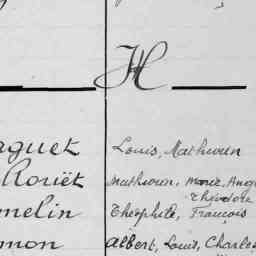 H
aguet Louis, Mathurin
Roriët Mathurin, Marie, Ang
Théodore
melin Théophile, François
mon Albert, Louis, Charles